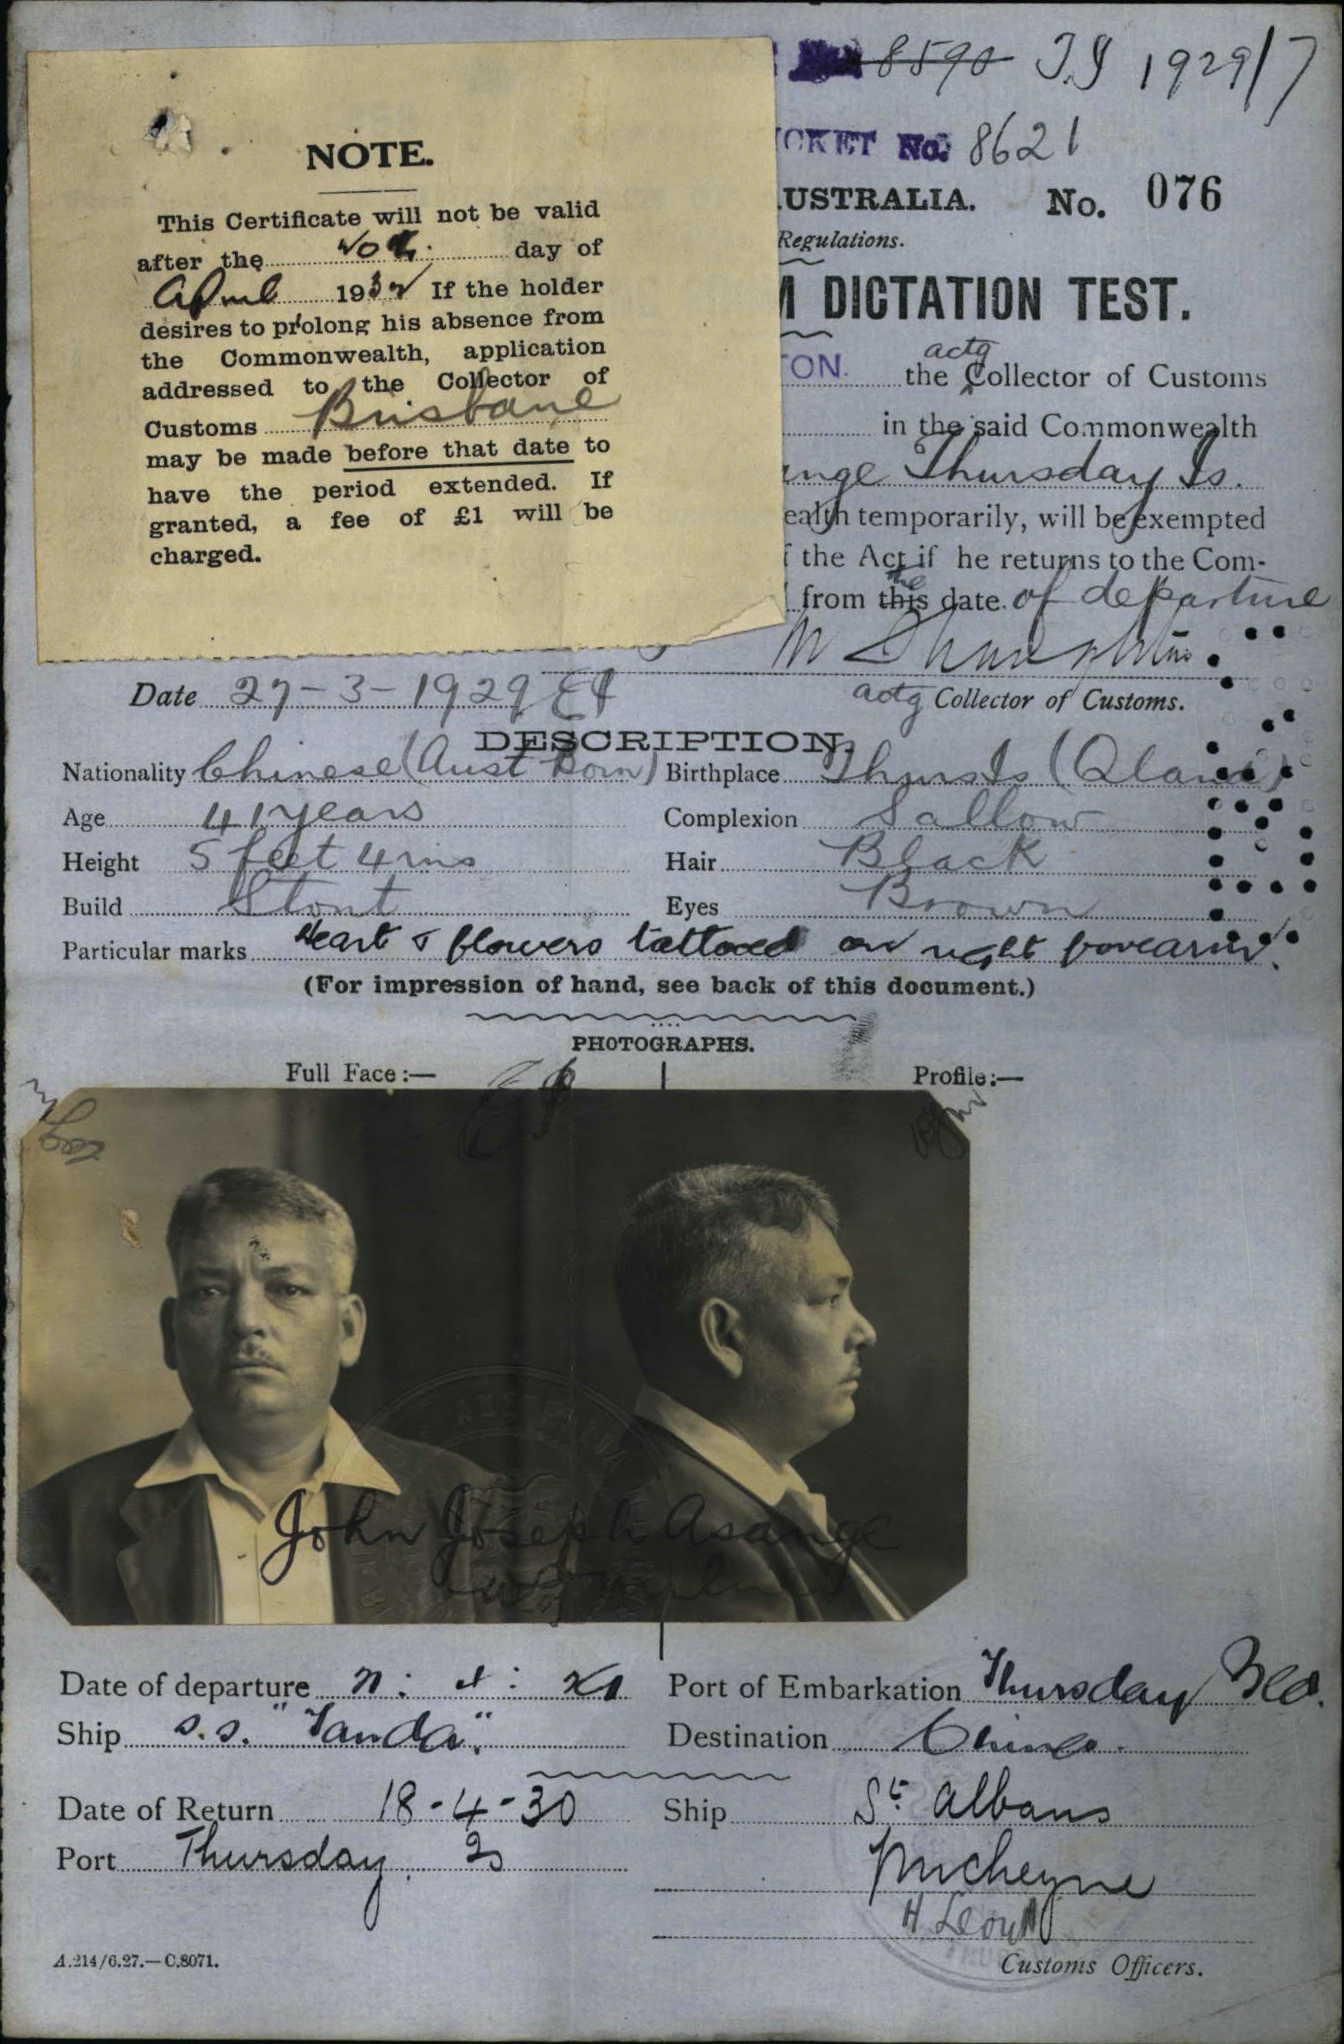 8590 T.I 1929/7
CKET No. 8621
NOTE.
This Certificate will not be valid
after the day of
April 1932 If the holder
desires to prolong his absence from
the Commonwealth, application
addressed to the Collector of
Customs Brisbane
may be made before that date to
have the period extended. If
granted, a fee of £1 will be
charged.
USTRALIA. No. 076
Regulations.
M DICTATION TEST.
TON. the actg Collector of Customs
in the said Commonwealth
ange Thursday Is.
ealth temporarily, will be exempted
the Act if he returns to the Com-
from this the date of departure
Date 27-3-1929 actg Collector of Customs.
DESCRIPTION.
Nationality Chinese (Aust Born) Birthplace Thurs Is (Qland)
Age 41 years Complexion Sallow
Height 5 feet 4 ins Hair Black
Build Stout Eyes Brown
Particular marks Heart & flowers tattooed on right forearm.
(For impression of hand, see back of this document.)
PHOTOGRAPHS.
Full Face:— Profile:—
John Joseph Asange
Date of departure Port of Embarkation Thursday Isd.
Ship s.s. "Tanda". Destination China.
Date of Return 18-4-30 Ship St. Albans
Port Thursday Is
McCheyne
H. Leour
A.214/6.27.—C.8071. Customs Officers.